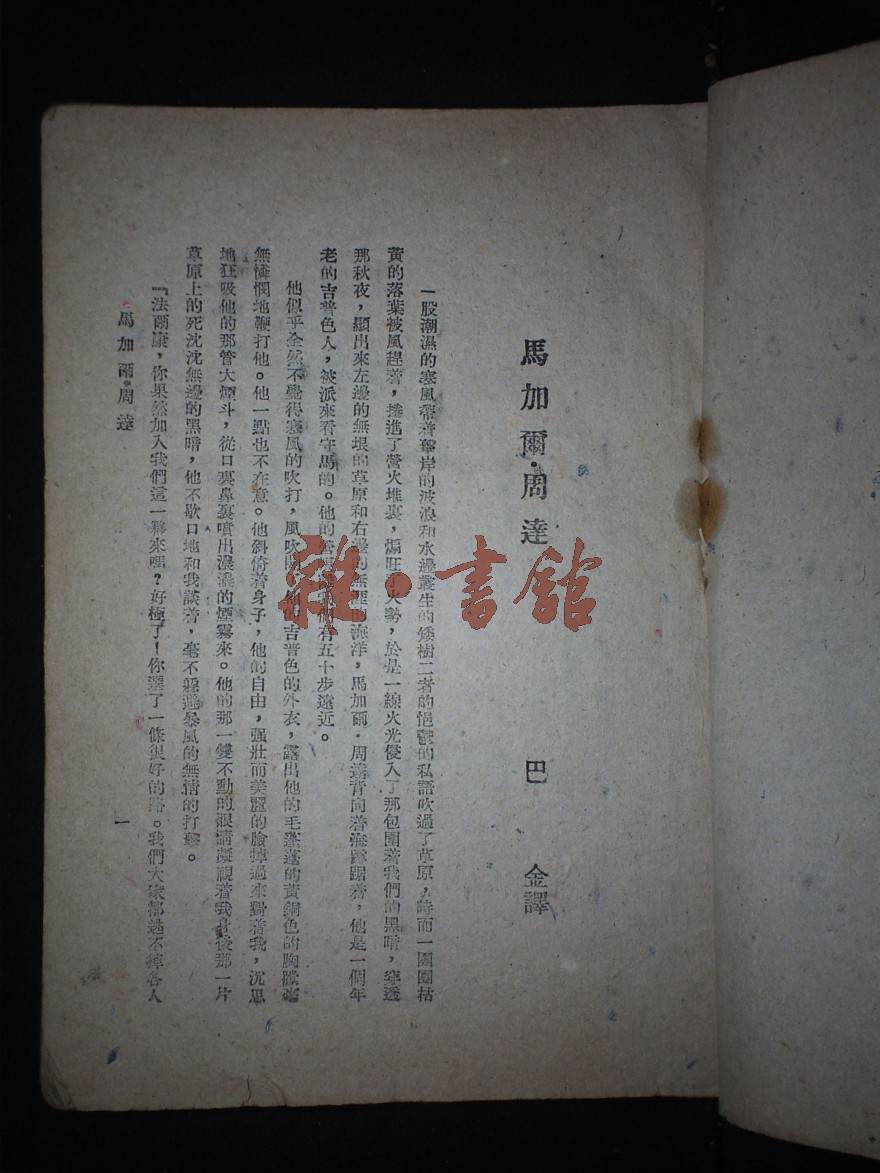 馬加爾·周達
巴金譯
一股潮濕的寒風帶着擊岸的波浪和水邊叢生的矮樹二者的悒鬱的私語吹過了草原,時而一團團枯
黃的落葉被風趕着,捲進了營火堆裏,煽旺了火勢,於是一線火光侵入了那包圍着我們的黑暗,穿透
那秋夜,顯出來左邊的無垠的草原和右邊的無涯的海洋,馬加爾·周達背向着海蹲踞着,他是一個年
老的吉普色人,被派來看守馬的。他的 我們有五十步遠近。
他似乎全然不覺得寒風的吹打,風吹開 他的吉普色的外衣,露出他的毛蓬蓬的黃銅色的胸膛毫
無憐憫地鞭打他。他一點也不在意。他斜倚着身子,他的自由,强壯而美麗的臉掉過來對着我,沉思
地狂吸他的那管大煙斗,從口裏鼻裏噴出濃濃的煙霧來。他的那一雙不動的眼睛凝視着我身後那一片
草原上的死沈沈無邊的黑暗,他不歇口地和我談着,毫不躲避暴風的無情的打擊。
『法爾康,你果然加入我們這一夥來嗎?好極了!你選了一條很好的路。我們大家都逃不掉各人
馬加爾·周達
一
雜·書館